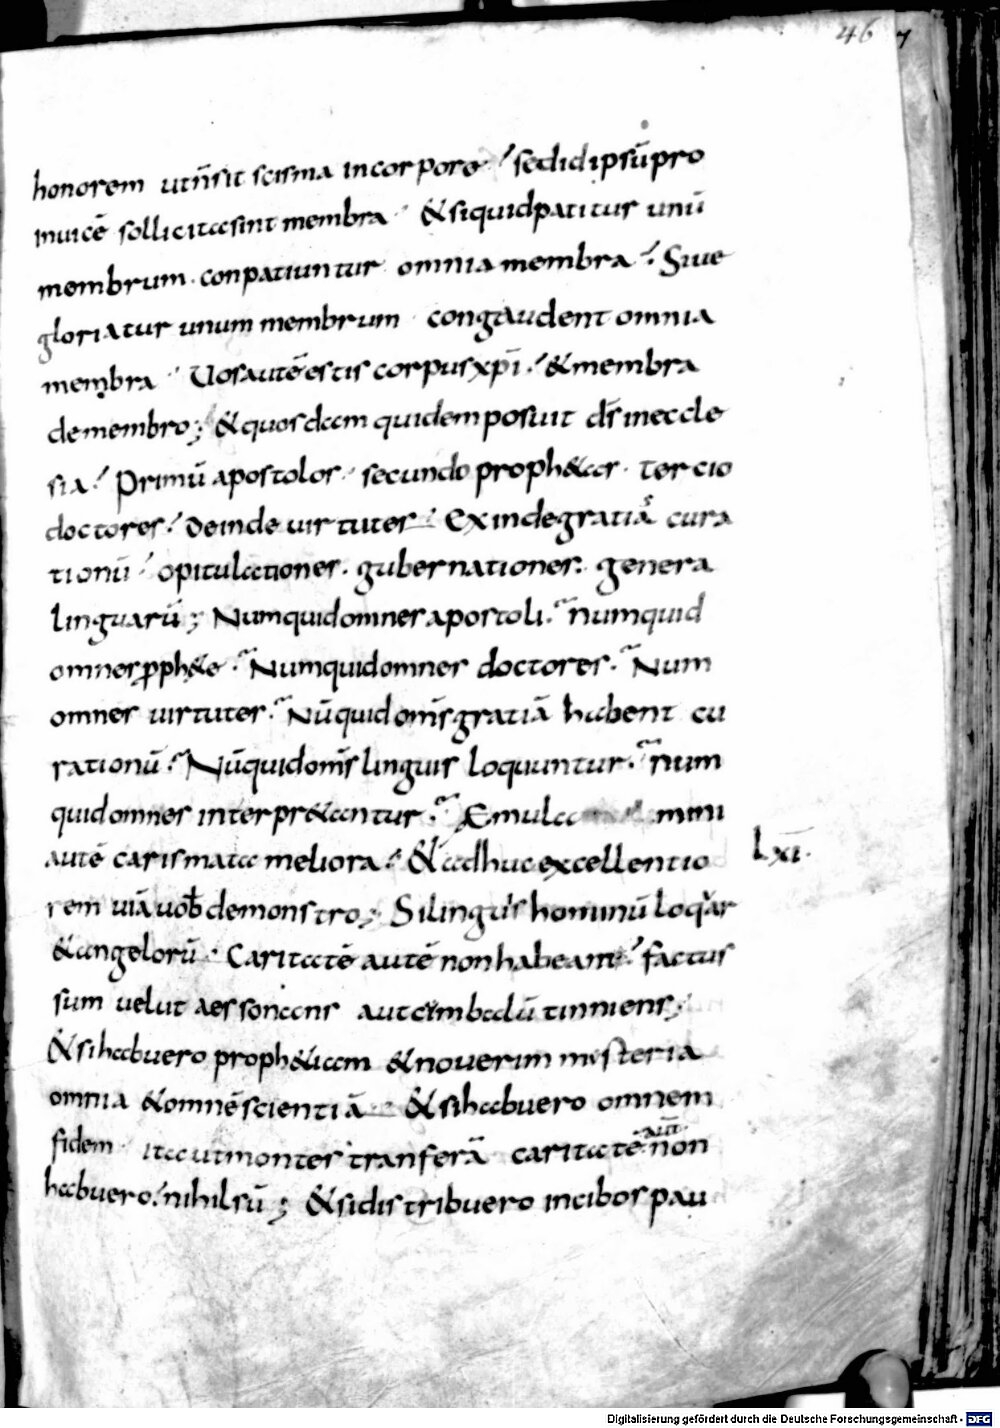 46 7
honorem utn̄sit scisma incorpore· sedidipsūpro
inuicē sollicitasint membra· &siquidpatitur unū
membrum· conpatiuntur omnia membra· Siue
gloriatur unum membrum congaudent omnia
membra· Uosautēestis corpusxp̄i· &membra
demembro; &quosdam quidem posuit d̄s ineccle
sia· Primū apostolos· secundo proph&as· tercio
doctores· Deinde uirtutes· Exindegratiās cura
tionū· opitulationes· gubernationes· genera
linguarū; Numquidomnes apostoli· numquid
omnes proph&e· Numquidomnes doctores· Num
omnes uirtutes· Nūquid om̄s gratiā habent cu
rationū· Nūquidom̄s linguis loquuntur· num
quidomnes interpr&antur· Emula mini
autē carismata meliora· &adhuc excellentio
lxi·
rem uiā uob̄ demonstro; Silinguis hominū loquar
&angelorū· Caritatē autē nonhabeam· factus
sum uelut aes sonans autcymbalū tinniens;
&sihabuero proph&iam &nouerim misteria
omnia &omnēscientiā &sihabuero omnem
fidem itautmontes tranferā caritatē aut̄ non
habuero· nihilsū; &sidistribuero incibospau
Digitalisierung gefördert durch die Deutsche Forschungsgemeinschaft - DFG